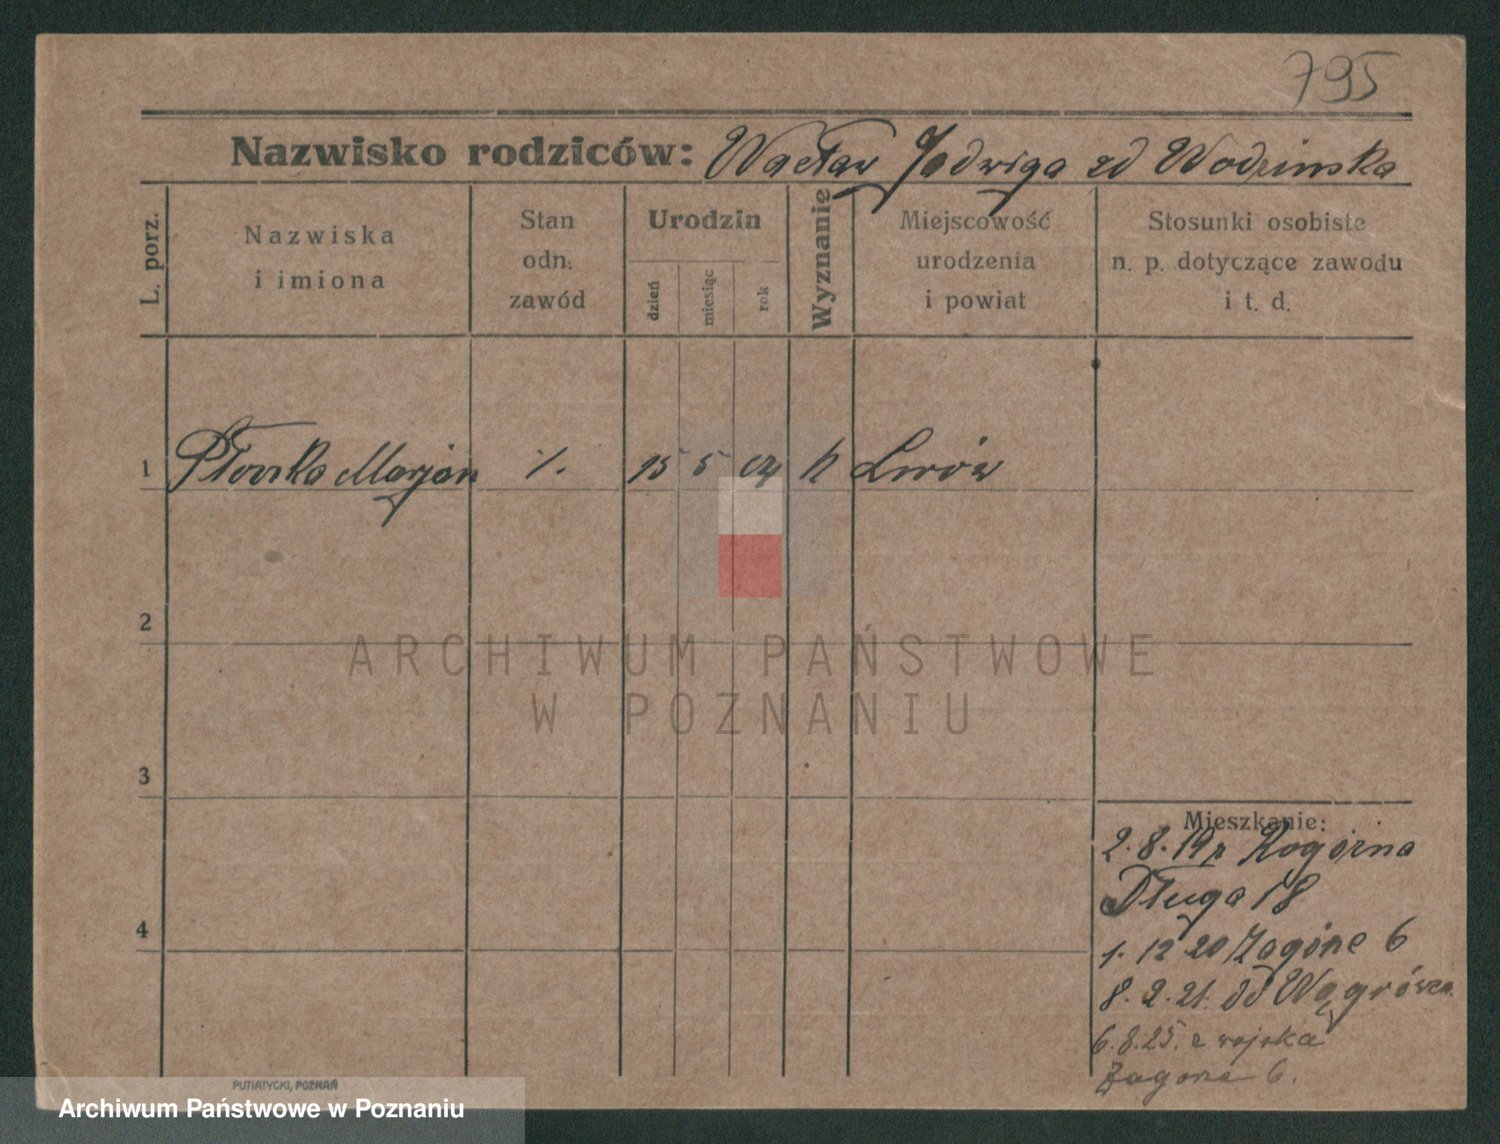 795
Nazwisko rodziców: Wacław Jadwiga zd Wodzinska
L. porz.
Nazwiska
i imiona
Stan
odn.
zawód
Urodzin
dzień
miesiąc
rok
Wyznanie
Miejscowość
urodzenia
i powiat
Stosunki osobiste
n. p. dotyczące zawodu
i t. d.
1 Płonska Marjan %. 15 5 04 k Lwów
2
ARCHIWUM PAŃSTWOWE
W POZNANIU
3
Mieszkanie:
2.8.19
Długa 18
4
1. 12 20 Zagórze 6
8. 2. 21. do Wągrówca
6.8.25. z wojska
Zagorze 6.
PUTIATYCKI, POZNAŃ
Archiwum Państwowe w Poznaniu